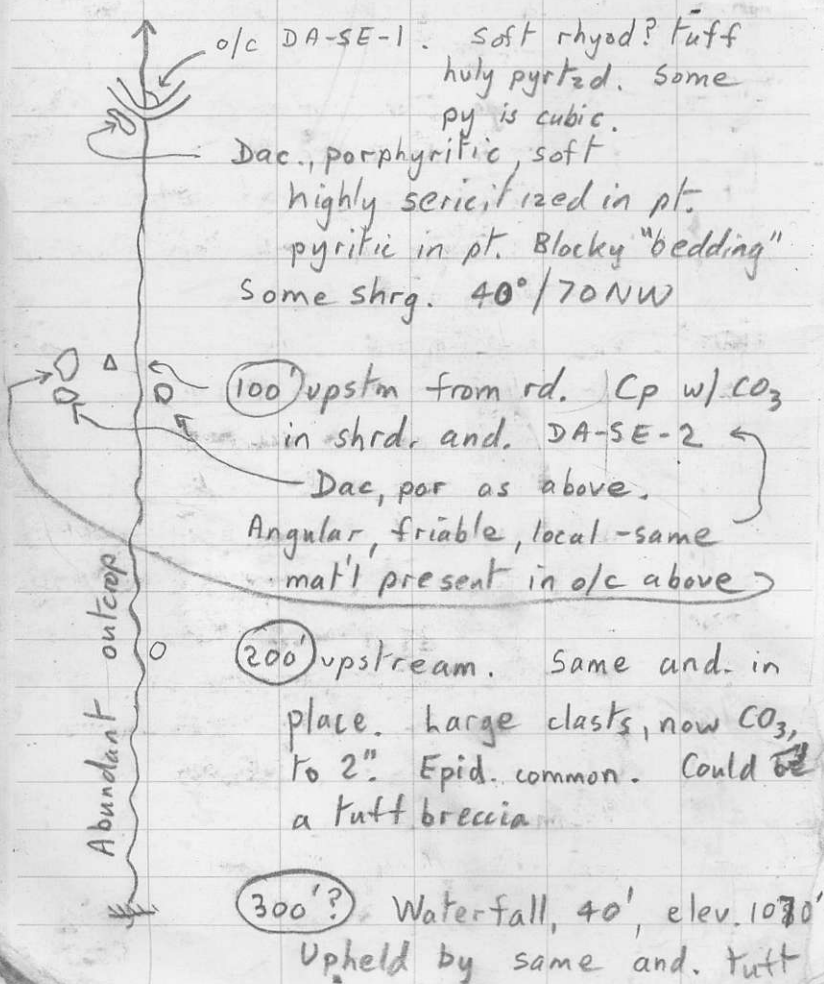 o/c DA-SE-1. Soft rhyod? tuff
huly pyrtzd. Some
py is cubic.
Dac., porphyritic, soft
highly sericitized in pt.
pyritic in pt. Blocky "bedding"
Some shrg. 40°/70NW
100' upstm from rd. Cp w/ CO3
in shrd. and. DA-SE-2
Dac, por as above.
Angular, friable, local - same
mat'l present in o/c above
Abundant outcrop
200' upstream. Same and. in
place. Large clasts, now CO3,
to 2". Epid. common. Could be
a tuff breccia
300'? Waterfall, 40', elev. 1070'
Upheld by same and. tuff